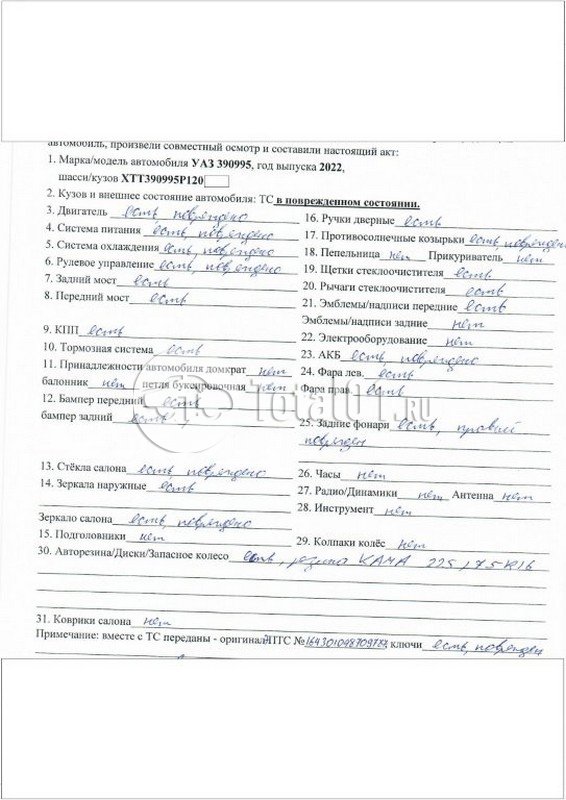 автомобиль, произвели совместный осмотр и составили настоящий акт:
1. Марка/модель автомобиля УАЗ 390995, год выпуска 2022,
шасси/кузов ХТТ390995Р120
2. Кузов и внешнее состояние автомобиля: ТС в поврежденном состоянии.
3. Двигатель есть, повреждено
4. Система питания есть, повреждено
5. Система охлаждения есть, повреждено
6. Рулевое управление есть, повреждено
7. Задний мост есть
8. Передний мост есть
9. КПП есть
10. Тормозная система есть
11. Принадлежности автомобиля домкрат нет
балонник нет петля буксировочная нет
12. Бампер передний есть
бампер задний есть
13. Стёкла салона есть, повреждено
14. Зеркала наружные есть
Зеркало салона есть, повреждено
15. Подголовники нет
16. Ручки дверные есть
17. Противосолнечные козырьки есть, поврежден
18. Пепельница нет Прикуриватель нет
19. Щетки стеклоочистителя есть
20. Рычаги стеклоочистителя есть
21. Эмблемы/надписи передние есть
Эмблемы/надписи задние нет
22. Электрооборудование нет
23. АКБ есть, повреждено
24. Фара лев. есть
Фара прав. есть
25. Задние фонари есть, правый
поврежден
26. Часы нет
27. Радио/Динамики нет Антенна нет
28. Инструмент нет
29. Колпаки колёс нет
30. Авторезина/Диски/Запасное колесо есть, резина КАМА 225/75R16
31. Коврики салона нет
Примечание: вместе с ТС переданы - оригинал ПТС № ключи есть, поврежден
Total01.ru